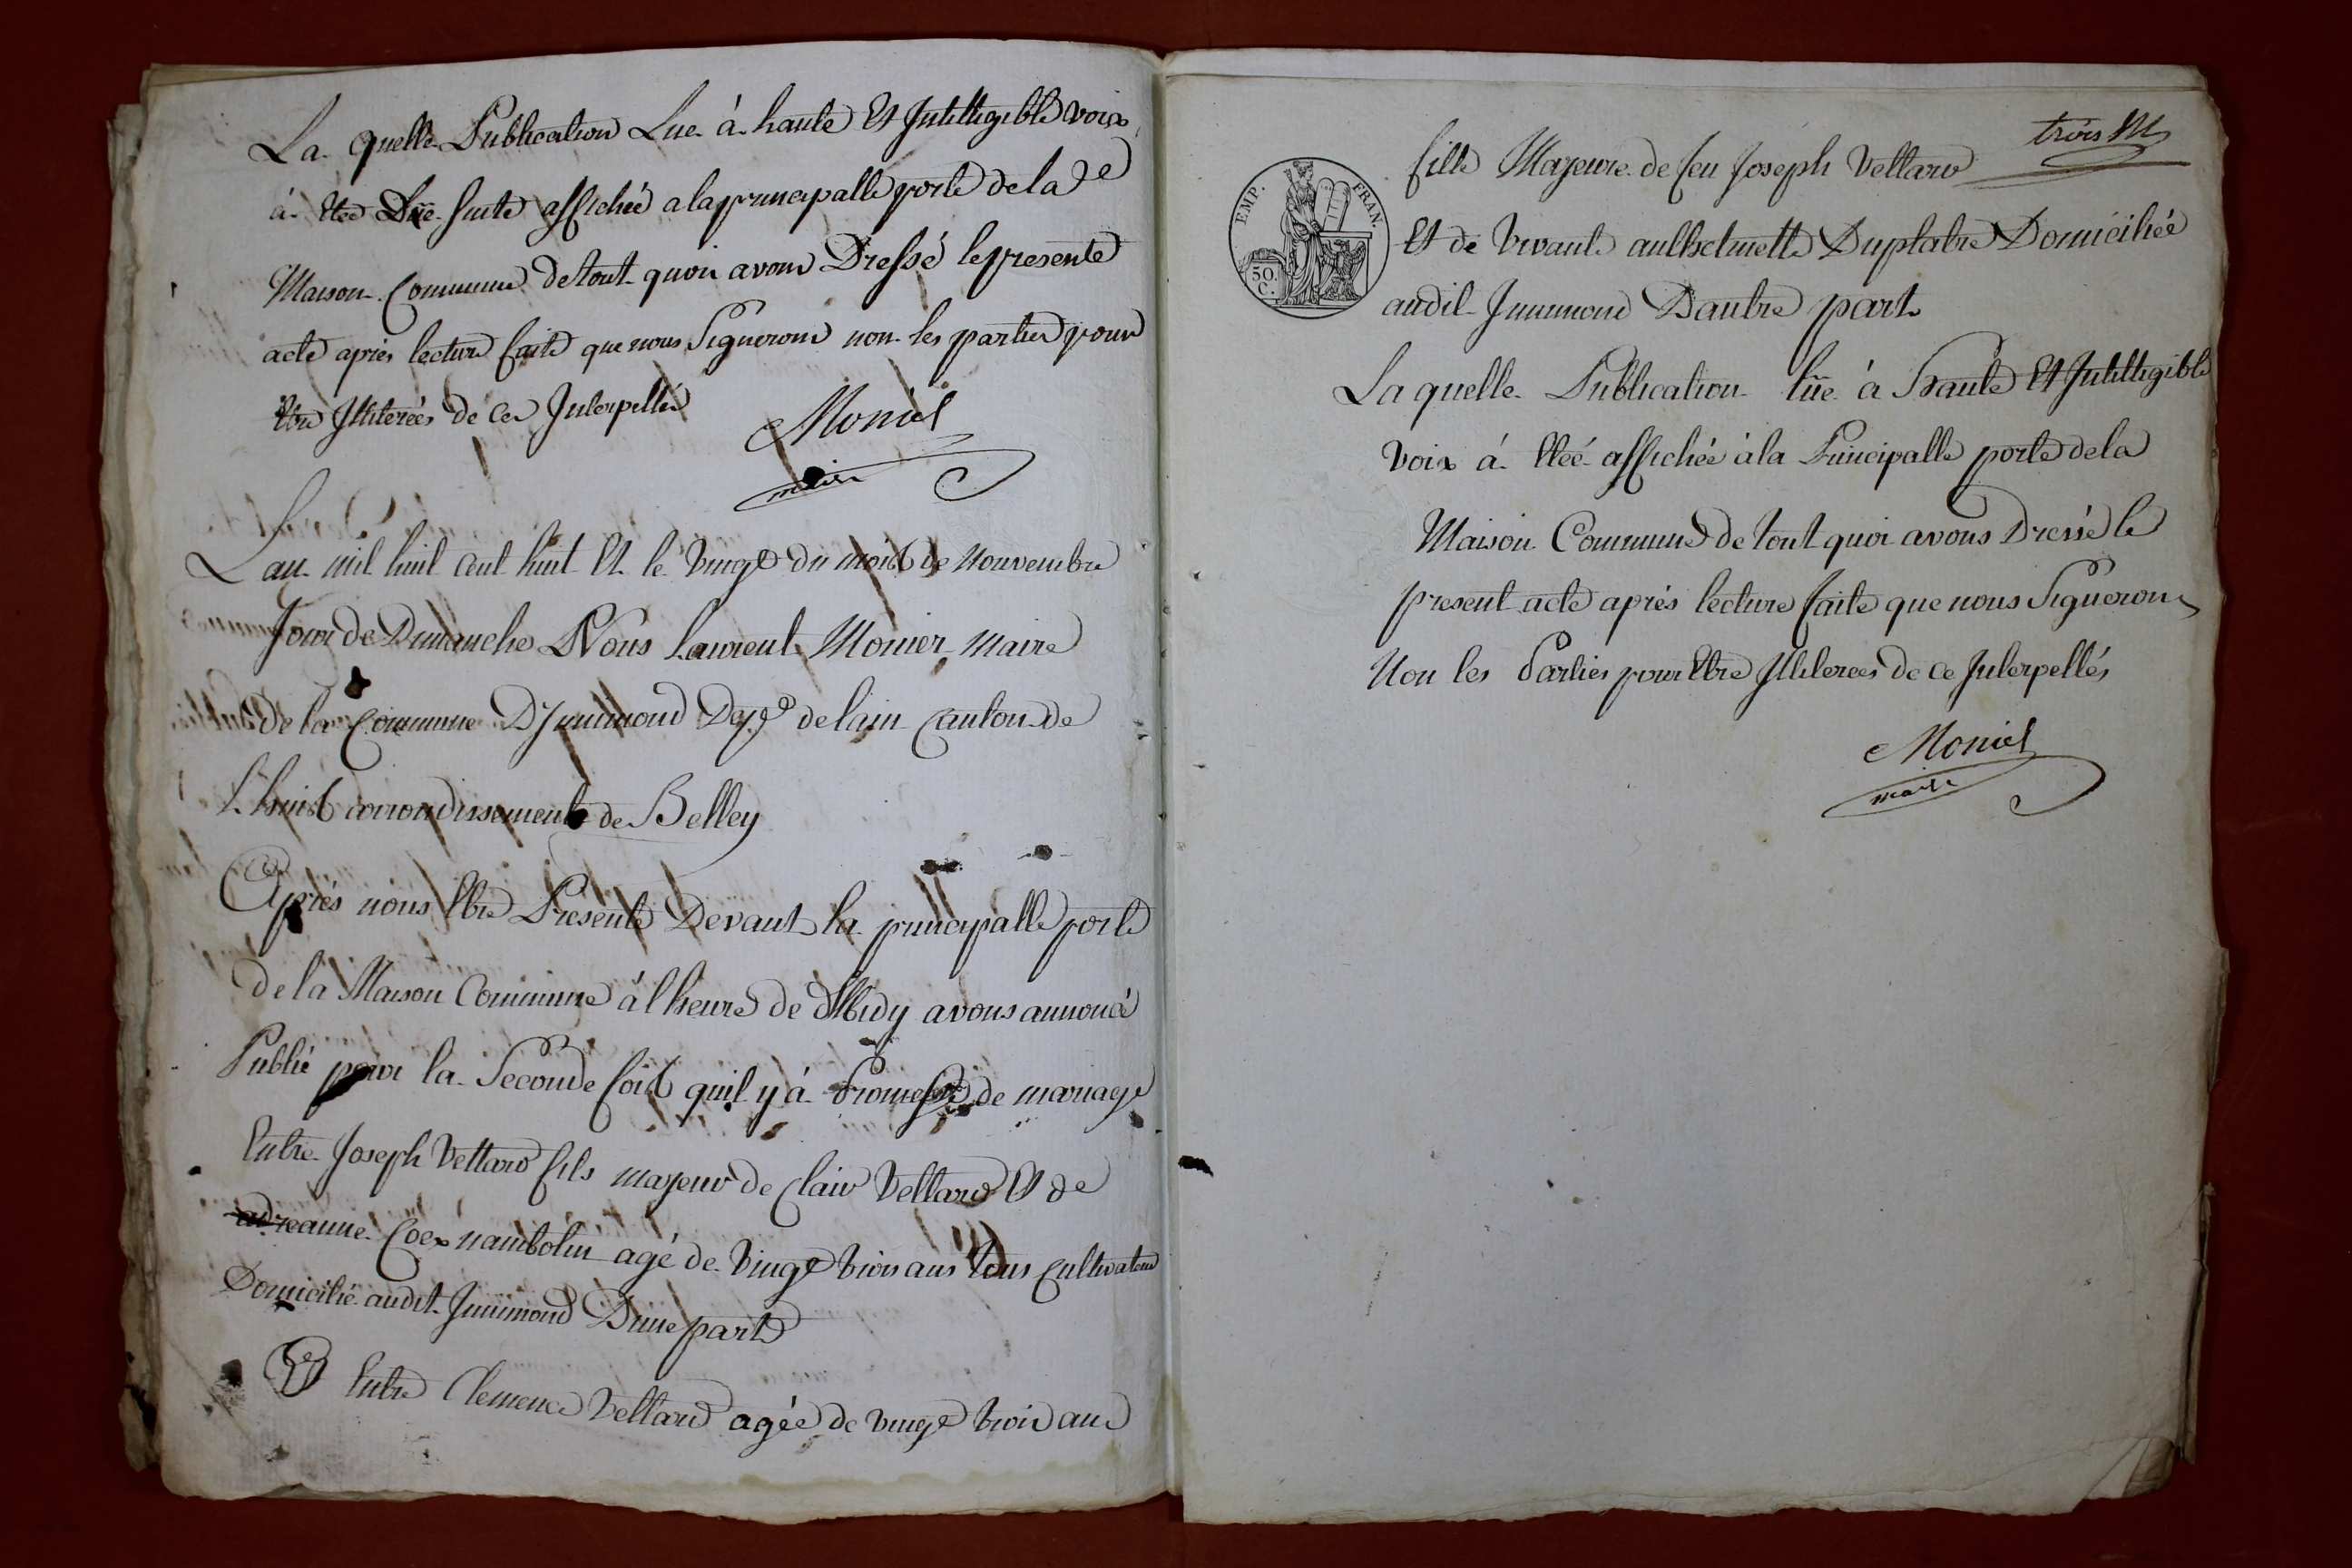 La quelle Publication Lue à haute Et Intilligible voix
à Etee De suite affichée a la principalle porte de la de
Maison Commune de tout quoi avons Dressé le presente
acte apries lecture faite que nous Signerons non les parties pour
Etre Illiterées de ce Interpellés
Monier
maire
L'an mil huit cent huit Et le vingt du mois de Nouvembre
Jour de Dimanche Nous Laurent Monier Maire
de la Commune D'Innimond Dept de lain Canton de
L'huis arrondissement de Belley
Après nous Etre Presenté Devant la principalle porte
de la Maison Commune à l'heure de Midy avons annoncé
Publié pour la Seconde fois quil y à Promesse de mariage
Entre Joseph Vettard fils majeur de Clair Vettard Et de
Coex nambotin agé de vingt trois ans tous cultivateur
Domicilié audit Innimond D'une part
Et Entre Clemence Vettard agée de vingt trois ans
trois M
EMP. FRAN.
50. C.
fille Majeure de feu Joseph Vettard
Et de vivante Duplatre Domiciliée
audit Innimond D'autre part
La quelle Publication lüe à Haute Et Intilligible
voix à Eteé affichée à la Principalle porte de la
Maison Commune de tout quoi avons Dressé le
present acte après lecture faite que nous Signerons
Non les Parties pour Etre Illiterees de ce Interpellés
Monier
maire